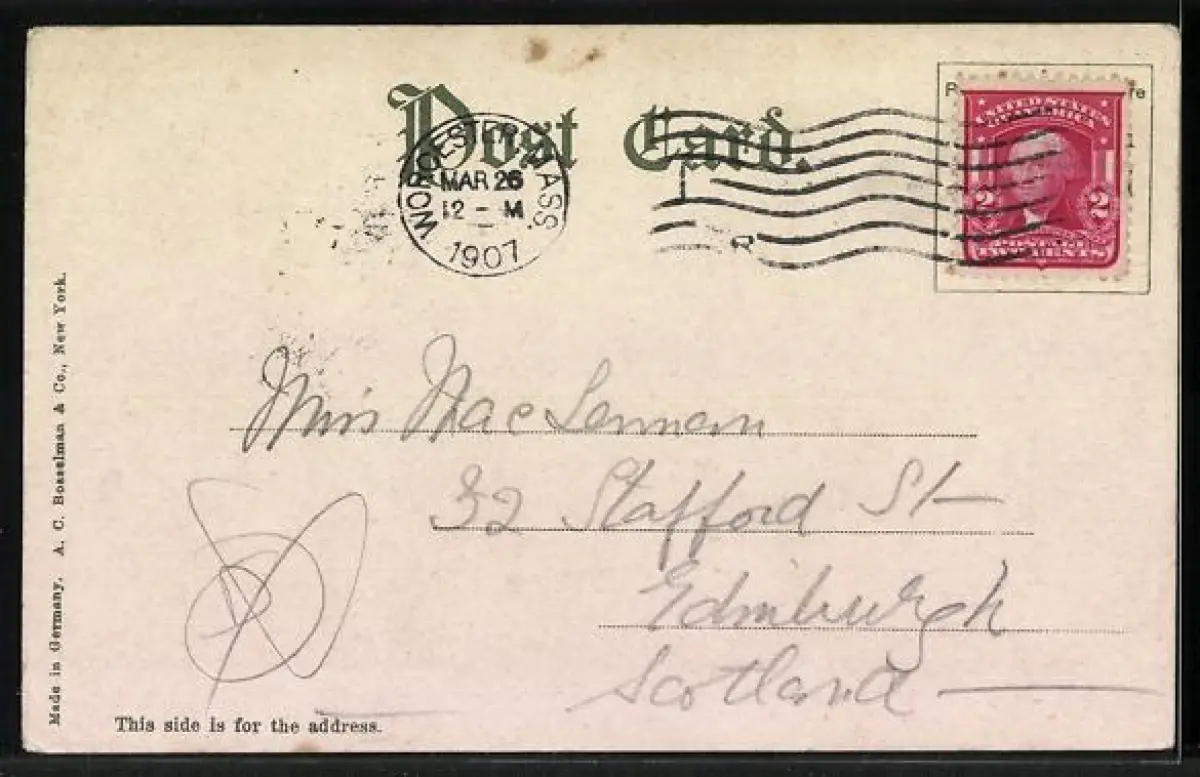 Post Card.
WORCESTER, MASS.
MAR 26
12 - M
1907
UNITED STATES
OF AMERICA
2 2
POSTAGE
TWO CENTS
Miss MacLennan
32 Stafford St
Edinburgh
Scotland
This side is for the address.
Made in Germany. A. C. Bosselman & Co., New York.